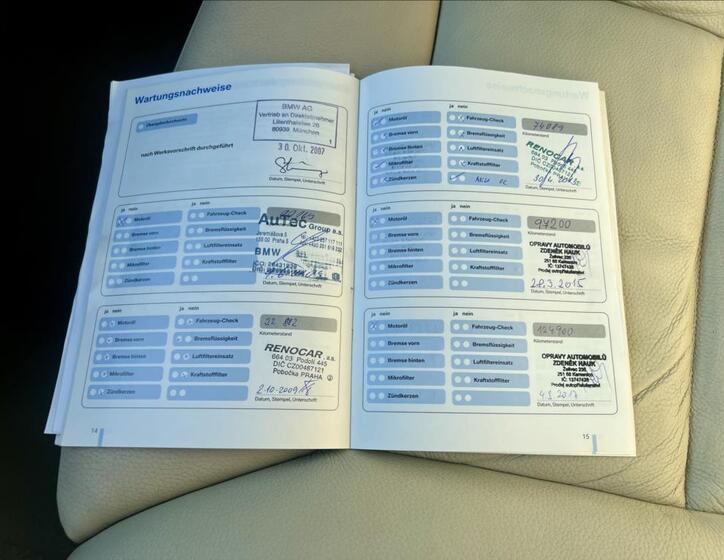 Wartungsnachweise
Übergabedurchsicht
nach Werksvorschrift durchgeführt
BMW AG
Vertrieb an Direktabnehmer
Lilienthalallee 26
80939 München
1
30. Okt. 2007
Datum, Stempel, Unterschrift
ja nein
Motoröl
Bremse vorn
Bremse hinten
Mikrofilter
Zündkerzen
Fahrzeug-Check
Bremsflüssigkeit
Luftfiltereinsatz
Kraftstofffilter
AuTec Group a.s.
Jeremiášova 5
155 00 Praha 5
BMW
ja nein
Motoröl
Bremse vorn
Bremse hinten
Mikrofilter
Zündkerzen
Fahrzeug-Check
Bremsflüssigkeit
Luftfiltereinsatz
Kraftstofffilter
Kilometerstand
RENOCAR, a.s.
664 03 Podolí 445
DIČ CZ00487121
Pobočka PRAHA ②
2.10.2009
Datum, Stempel, Unterschrift
14
ja nein
Motoröl
Bremse vorn
Bremse hinten
Mikrofilter
Zündkerzen
Fahrzeug-Check
Bremsflüssigkeit
Luftfiltereinsatz
Kraftstofffilter
Kilometerstand
RENOCAR, a.s.
664 03 Podolí 445
DIČ CZ00487121
Pobočka PRAHA
Datum, Stempel, Unterschrift
ja nein
Motoröl
Bremse vorn
Bremse hinten
Mikrofilter
Zündkerzen
Fahrzeug-Check
Bremsflüssigkeit
Luftfiltereinsatz
Kraftstofffilter
97200
Kilometerstand
OPRAVY AUTOMOBILŮ
ZDENĚK HAUK
Želivec 236
251 68 Kamenice
IČ: 13747428
Prodej autopříslušenství
28.3.2015
Datum, Stempel, Unterschrift
ja nein
Motoröl
Bremse vorn
Bremse hinten
Mikrofilter
Zündkerzen
Fahrzeug-Check
Bremsflüssigkeit
Luftfiltereinsatz
Kraftstofffilter
124900
Kilometerstand
OPRAVY AUTOMOBILŮ
ZDENĚK HAUK
Želivec 236
251 68 Kamenice
IČ: 13747428
Prodej autopříslušenství
Datum, Stempel, Unterschrift
15